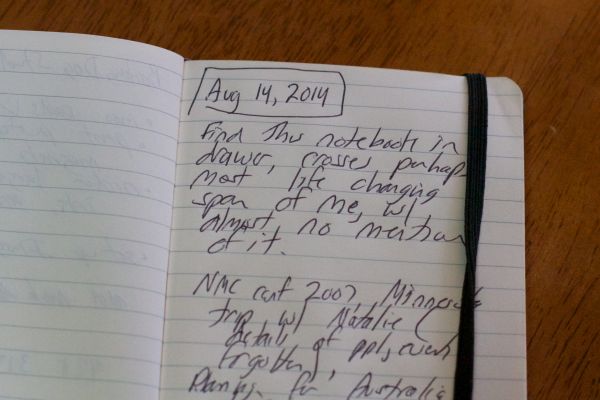 Aug 14, 2014
Find this notebook in
drawer, crosses perhaps
most life changing
span of me, w/
almost no mention
of it.
NMC conf 2007, Minnesota
trip w/ Natalie (
details of ppl, even
forgotten),
Planning for Australia